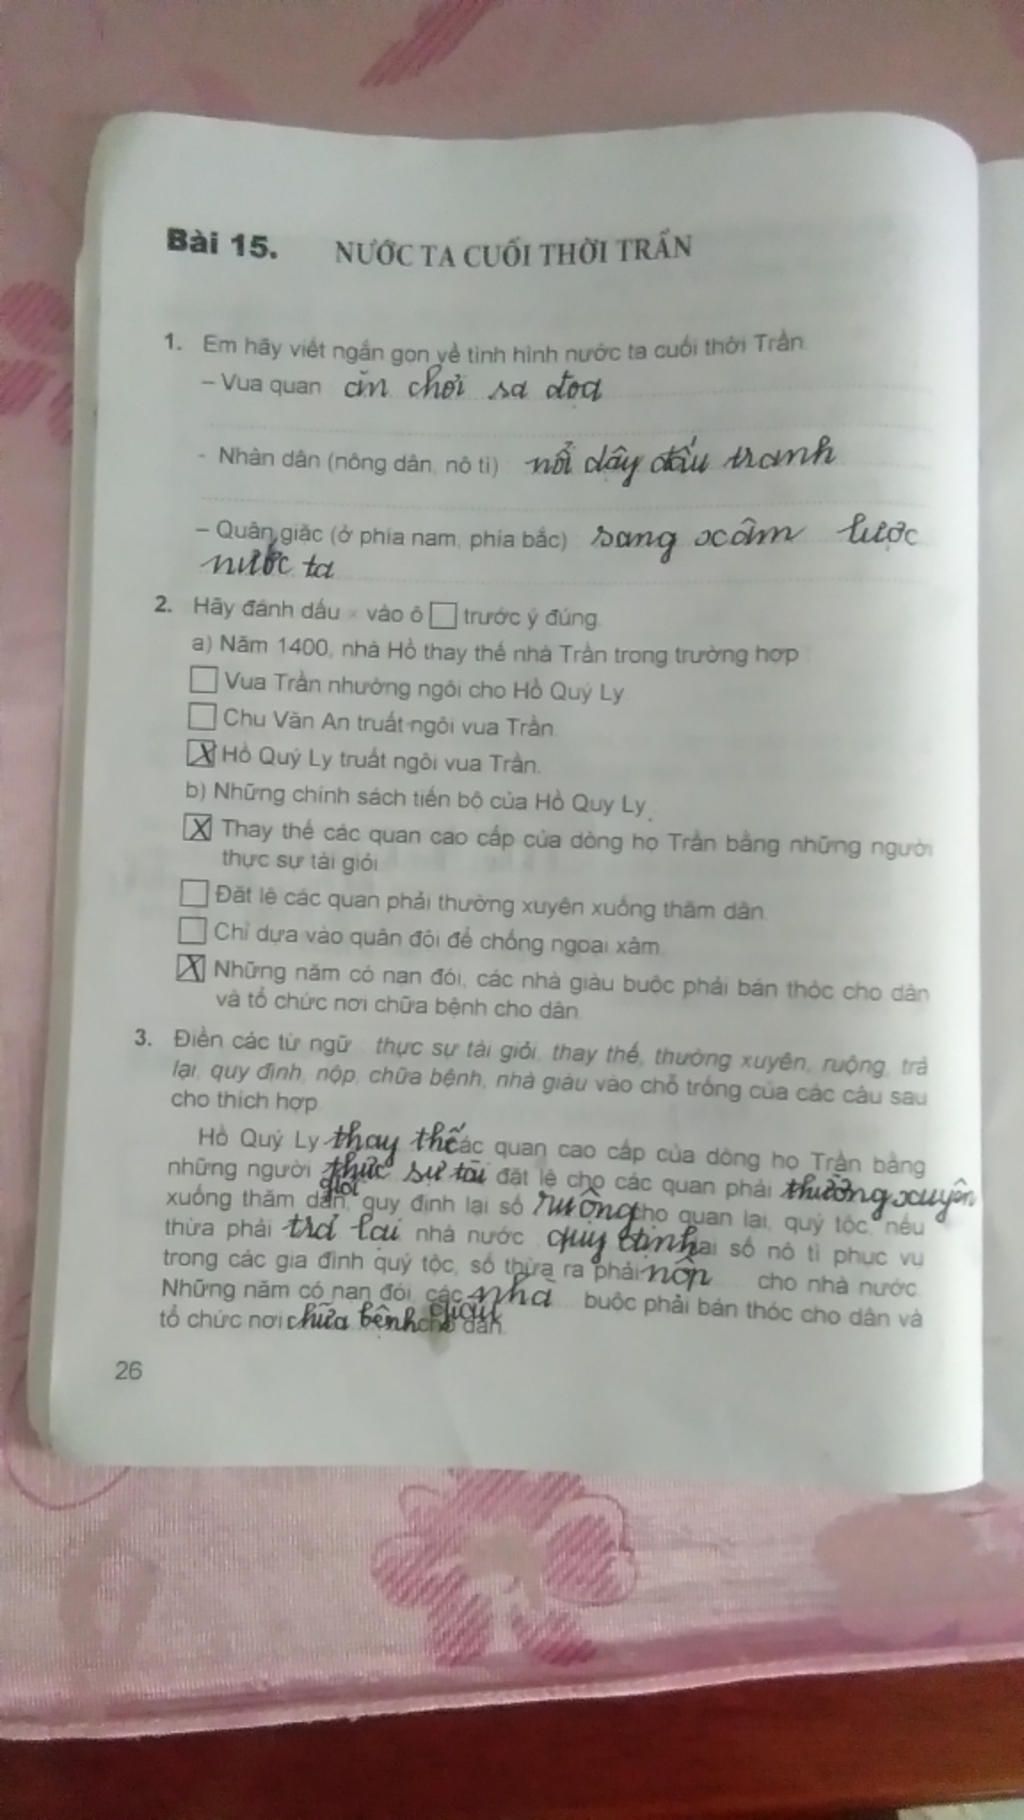 Bài 15. NƯỚC TA CUỐI THỜI TRẦN
1. Em hãy viết ngắn gọn về tình hình nước ta cuối thời Trần.
– Vua quan ăn chơi sa đọa
- Nhân dân (nông dân, nô tì) nổi dậy đấu tranh
– Quân giặc (ở phía nam, phía bắc) sang xâm lược
nước ta
2. Hãy đánh dấu × vào ô □ trước ý đúng.
a) Năm 1400, nhà Hồ thay thế nhà Trần trong trường hợp :
□ Vua Trần nhường ngôi cho Hồ Quý Ly
□ Chu Văn An truất ngôi vua Trần.
X Hồ Quý Ly truất ngôi vua Trần.
b) Những chính sách tiến bộ của Hồ Quý Ly :
X Thay thế các quan cao cấp của dòng họ Trần bằng những người
thực sự tài giỏi
□ Đặt lệ các quan phải thường xuyên xuống thăm dân.
□ Chỉ dựa vào quân đội để chống ngoại xâm.
X Những năm có nạn đói, các nhà giàu buộc phải bán thóc cho dân
và tổ chức nơi chữa bệnh cho dân.
3. Điền các từ ngữ : thực sự tài giỏi, thay thế, thường xuyên, ruộng, trả
lại, quy định, nộp, chữa bệnh, nhà giàu vào chỗ trống của các câu sau
cho thích hợp.
Hồ Quý Ly thay thế các quan cao cấp của dòng họ Trần bằng
những người thực sự tài đặt lệ cho các quan phải thường xuyên
giỏi
xuống thăm dân, quy định lại số ruộng cho quan lại, quý tộc, nếu
thừa phải trả lại nhà nước, quy định lại số nô tì phục vụ
trong các gia đình quý tộc, số thừa ra phải nộp cho nhà nước.
Những năm có nạn đói, các nhà buộc phải bán thóc cho dân và
giàu
tổ chức nơi chữa bệnh cho dân.
26